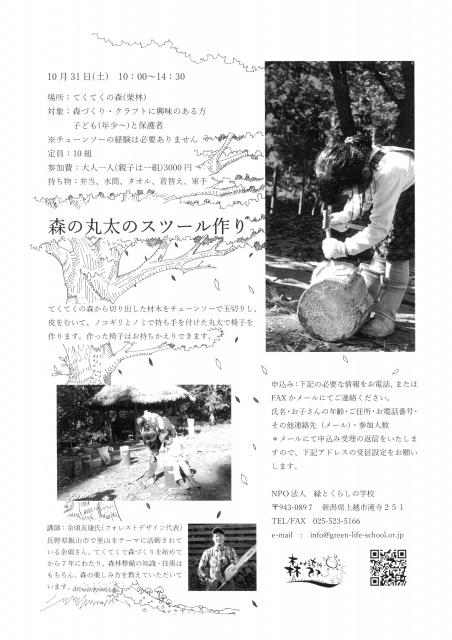 10月31日(土)　10：00～14：30
場所：てくてくの森(栗林)
対象：森づくり・クラフトに興味のある方
子ども(年少～)と保護者
※チェーンソーの経験は必要ありません
定員：10組
参加費：大人一人(親子は一組)3000円
持ち物：弁当、水筒、タオル、着替え、軍手
森の丸太のスツール作り
てくてくの森から切り出した材木をチェーンソーで玉切りし、
皮をむいて、ノコギリとノミで持ち手を付けた丸太で椅子を
作ります。作った椅子はお持ちかえりできます。
申込み：下記の必要な情報をお電話、または
FAXかメールにてご連絡ください。
氏名・お子さんの年齢・ご住所・お電話番号・
その他連絡先（メール）・参加人数
＊メールにて申込み受理の返信をいたしま
すので、下記アドレスの受信設定をお願い
します。
NPO法人　緑とくらしの学校
〒943-0897　新潟県上越市滝寺251
TEL/FAX　025-523-5166
e-mail　：　info@green-life-school.or.jp
講師：余頃友康氏(フォレストデザイン代表)
長野県飯山市で里山をテーマに活動されて
いる余頃さん。てくてくで森づくりを始めて
から7年にわたり、森林整備の知識・技術は
もちろん、森の楽しみ方を教えていただいて
います。